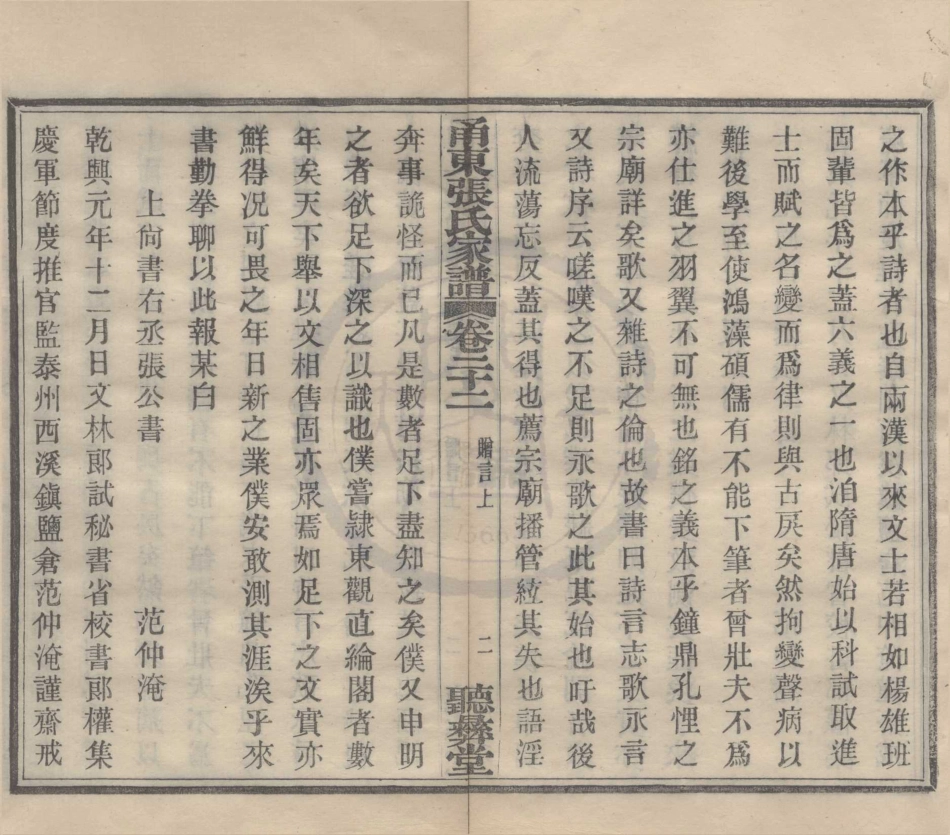 之作本乎詩者也自兩漢以來文士若相如楊雄班
固輩皆爲之蓋六義之一也洎隋唐始以科試取進
士而賦之名變而爲律則與古戾矣然拘變聲病以
難後學至使鴻藻碩儒有不能下筆者曾壯夫不爲
亦仕進之羽翼不可無也銘之義本乎鐘鼎孔悝之
宗廟詳矣歌又雜詩之倫也故書曰詩言志歌永言
又詩序云嗟嘆之不足則永歌之此其始也吁哉後
人流蕩忘反蓋其得也薦宗廟播管絃其失也語淫
甬東張氏家譜 卷二十二 贈言上 二 聽彝堂
奔事詭怪而已凡是數者足下盡知之矣僕又申明
之者欲足下深之以識也僕嘗隸東觀直綸閣者數
年矣天下舉以文相售固亦眾焉如足下之文實亦
鮮得况可畏之年日新之業僕安敢測其涯涘乎來
書勤拳聊以此報某白
上尙書右丞張公書 范仲淹
乾興元年十二月日文林郞試秘書省校書郞權集
慶軍節度推官監泰州西溪鎭鹽倉范仲淹謹齋戒